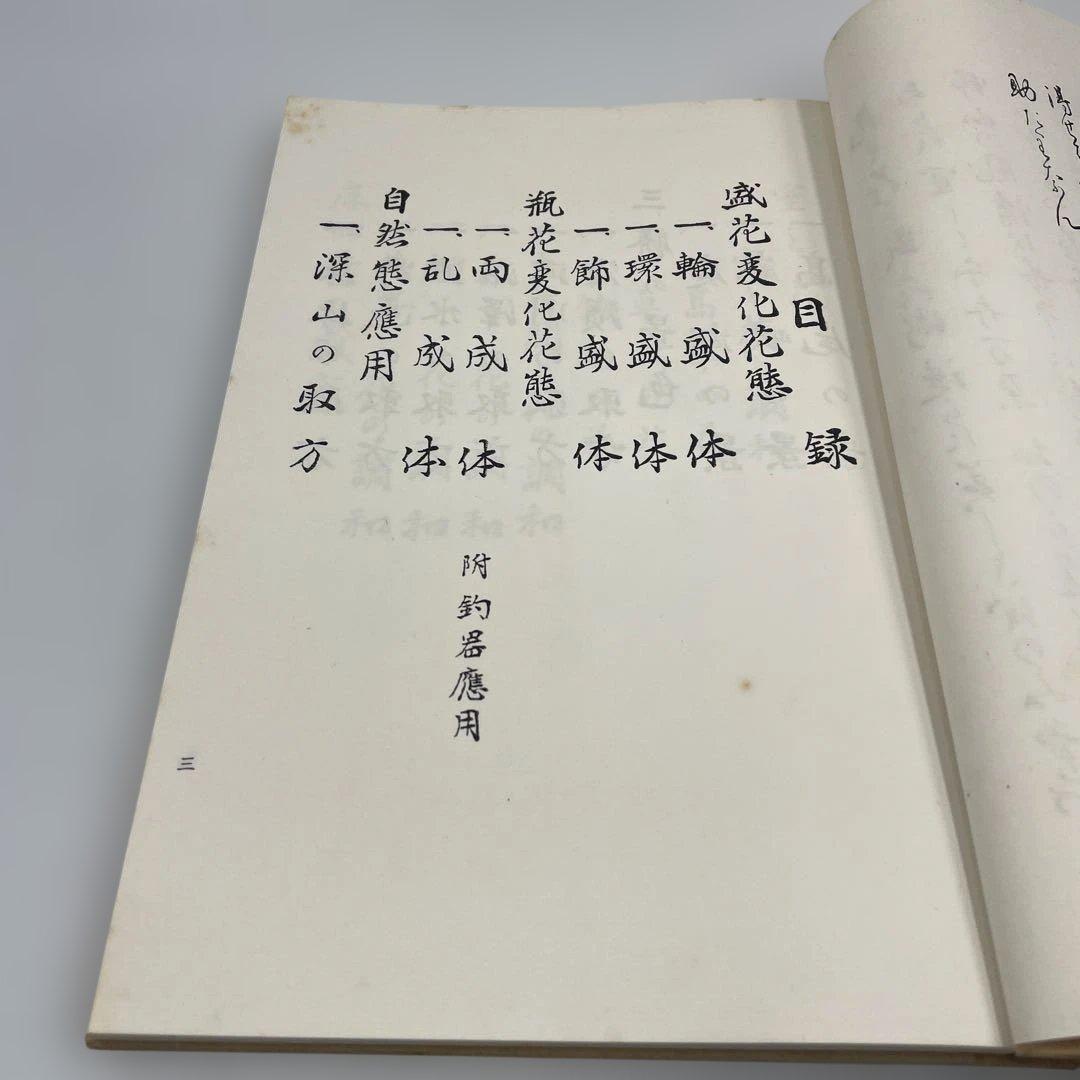 助
目録
盛花変化花態
一、輪盛体
一、環盛体
一、飾盛体
瓶花変化花態
一、両成体
附釣器應用
一、乱成体
自然態應用
一、深山の取方
三